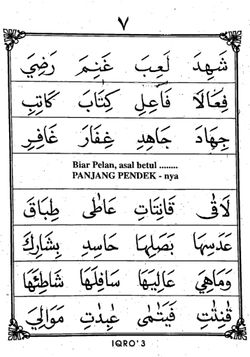 ٧
شَهِدَ لَعِبَ غَنِمَ رَضِيَ
فِعَالًا فَاعِلِ كِتَابَ كَاتِبِ
جِهَادَ جَاهِدِ غِفَارَ غَافِرِ
Biar Pelan, asal betul ........
PANJANG PENDEK - nya
لَاقٰى قَانِتَاتِ عَاطٰى طِبَاقَ
عَدَسِهَا بَصَلِهَا حَاسِدِ بِشَارِكَ
وَمَاهِيَ عَالِيَهَا سَافِلَهَا شَاطِئِهَا
قٰنِتٰتٍ فَيَتٰمٰى عٰبِدٰتٍ مَوَالِيَ
IQRO' 3